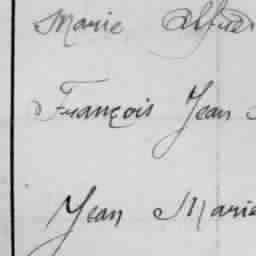 Marie Alfred
François Jean
Jean Marie